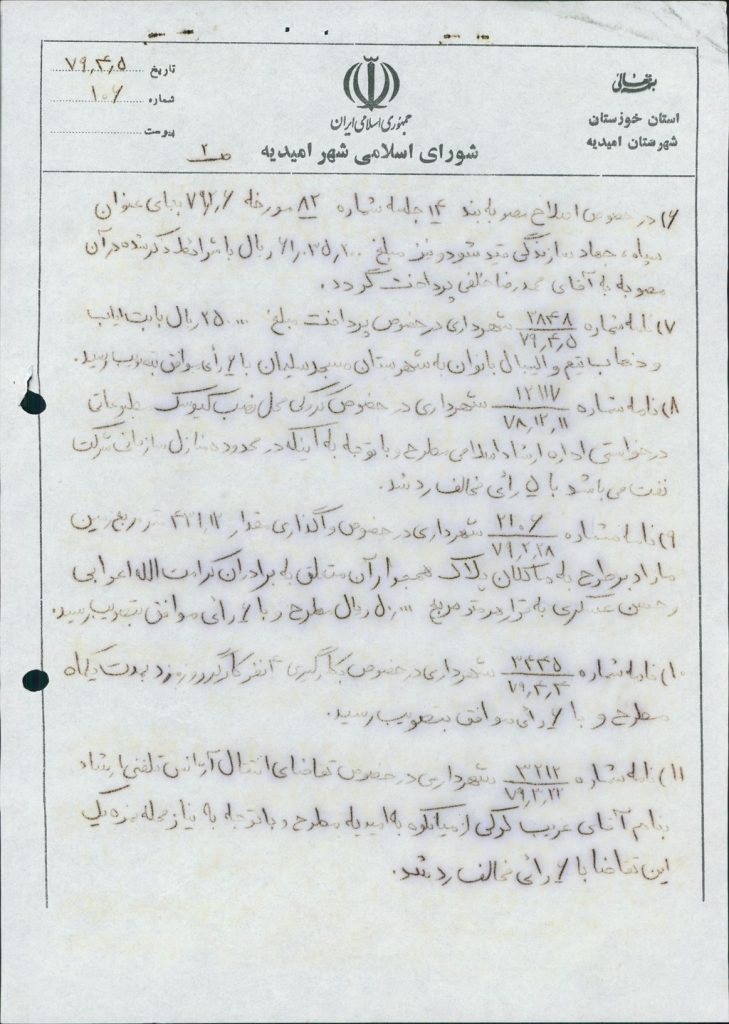 بسمه تعالی
استان خوزستان
شهرستان امیدیه
جمهوری اسلامی ایران
شورای اسلامی شهر امیدیه
تاریخ ۷۹,۴,۵
شماره ۱۰۶
پیوست
ص ۲
۶) در خصوص اصلاح مصوبه بند ۱۴ جلسه شماره ۸۲ مورخه ۷۹,۲,۶ بجای عنوان
سپاه، جهاد سازندگی قید شود و نیز مبلغ ریال با شرائط ذکر شده در آن
مصوبه به آقای محمدرضا خلفی پرداخت گردد.
۷) نامه شماره ۲۸۴۸/۷۹,۴,۵ شهرداری در خصوص پرداخت مبلغ ریال بابت ایاب
و ذهاب تیم والیبال بانوان به شهرستان مسجدسلیمان با ۶ رأی موافق بتصویب رسید.
۸) نامه شماره ۱۲۱۱۷/۷۸,۱۲,۱۱ شهرداری در خصوص محل نصب کیوسک مطبوعاتی
درخواستی اداره ارشاد اسلامی مطرح و با توجه به اینکه در محدوده منازل سازمانی شرکت
نفت می باشد با ۵ رأی مخالف رد شد.
۹) نامه شماره ۲۱۰۶/۷۹,۲,۲۸ شهرداری در خصوص واگذاری مقدار ۴۳۱,۱۲ متر مربع زمین
مازاد بر طرح به مالکان پلاک همجوار آن متعلق به برادران کرامت الله اعرابی
و حسن عسکری به قرار هر متر مربع ریال مطرح و با ۶ رأی موافق بتصویب رسید.
۱۰) نامه شماره ۳۴۴۵/۷۹,۴,۴ شهرداری در خصوص بکارگیری نفر کارگر روزمزد بمدت یکماه
مطرح و با ۶ رأی موافق بتصویب رسید.
۱۱) نامه شماره ۳۲۱۲/۷۹,۳,۲۲ شهرداری در خصوص تقاضای انتقال آژانس تلفنی ارشاد
بنام آقای غریب کرکی از میانکوه به امیدیه مطرح و با توجه به نیاز محله مزه یک
این تقاضا با ۶ رأی مخالف رد شد.